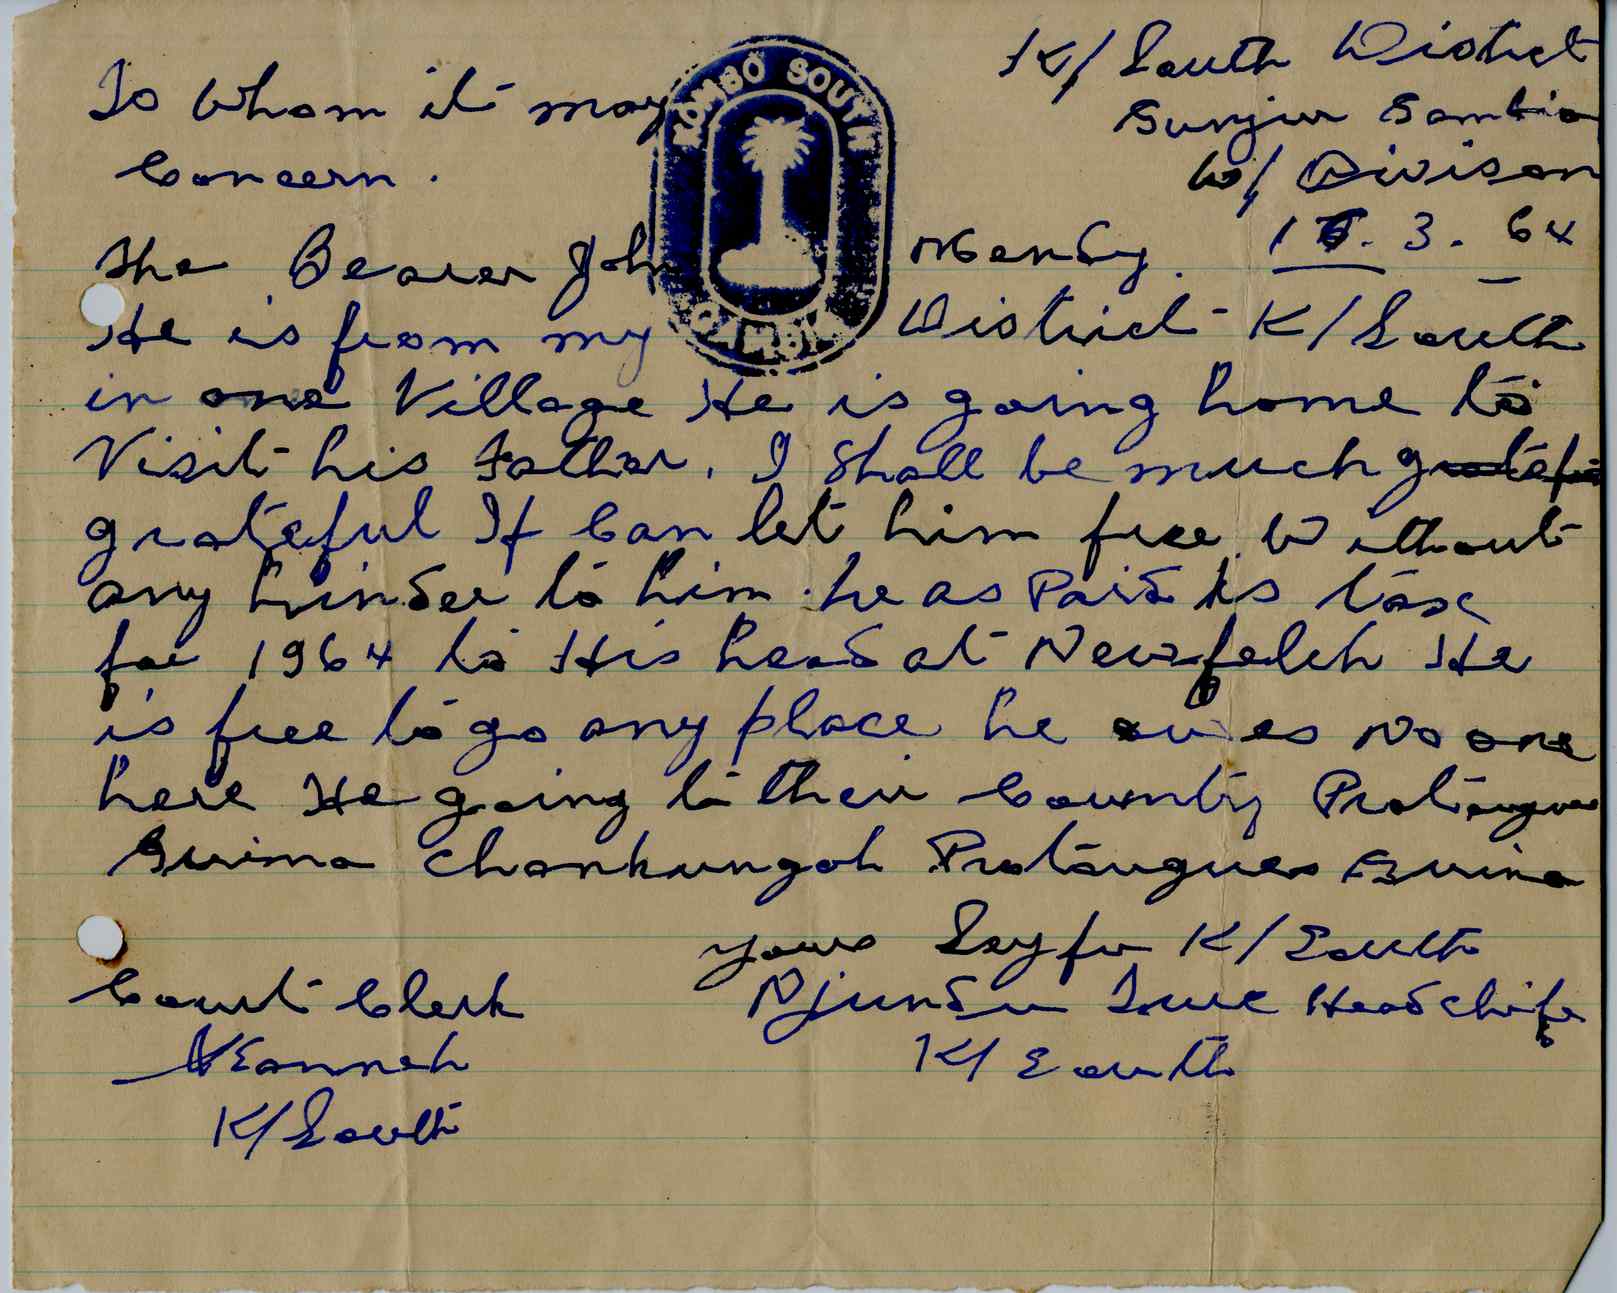 K/ South District
Gunjur Gambia
W/ Divison
3. 64
To Whom it may
Concern.
KOMBO SOUTH
GAMBIA
The Bearer John Mendy.
He is from my District K/ South
in one Village He is going home to
Visit his Father. I Shall be much gratefu
grateful If Can let him free Without
any hinder to him. he as Paid his tax
for 1964 to His head at New
is free to go any place he owes No one
here He going to their Country
Guina Guina
yours Seyfu K/ South
K/ South
Court Clerk
K/ South